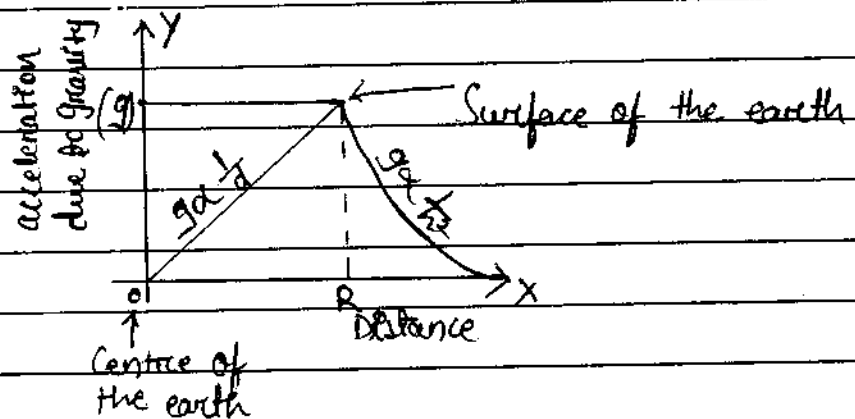 Y
acceleration
due to gravity
(g)
Surface of the earth
g α 1/d
O
R
X
Distance
Centre of
the earth